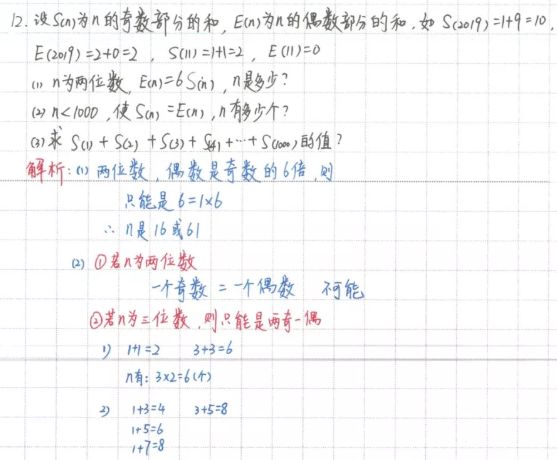 12. 设S(n)为n的奇数部分的和, E(n)为n的偶数部分的和. 如 S(2019)=1+9=10,
E(2019)=2+0=2, S(11)=1+1=2, E(11)=0
(1) n为两位数, E(n)=6S(n), n是多少?
(2) n<1000, 使S(n)=E(n), n有多少个?
(3) 求 S(1)+S(2)+S(3)+S(4)+…+S(1000)的值?
解析: (1) 两位数, 偶数是奇数的6倍, 则
只能是 6=1×6
∴ n是16或61
(2) ①若n为两位数
一个奇数 = 一个偶数 不可能
②若n为三位数, 则只能是两奇一偶
1) 1+1=2 3+3=6
n有: 3×2=6(个)
2) 1+3=4 3+5=8
1+5=6
1+7=8